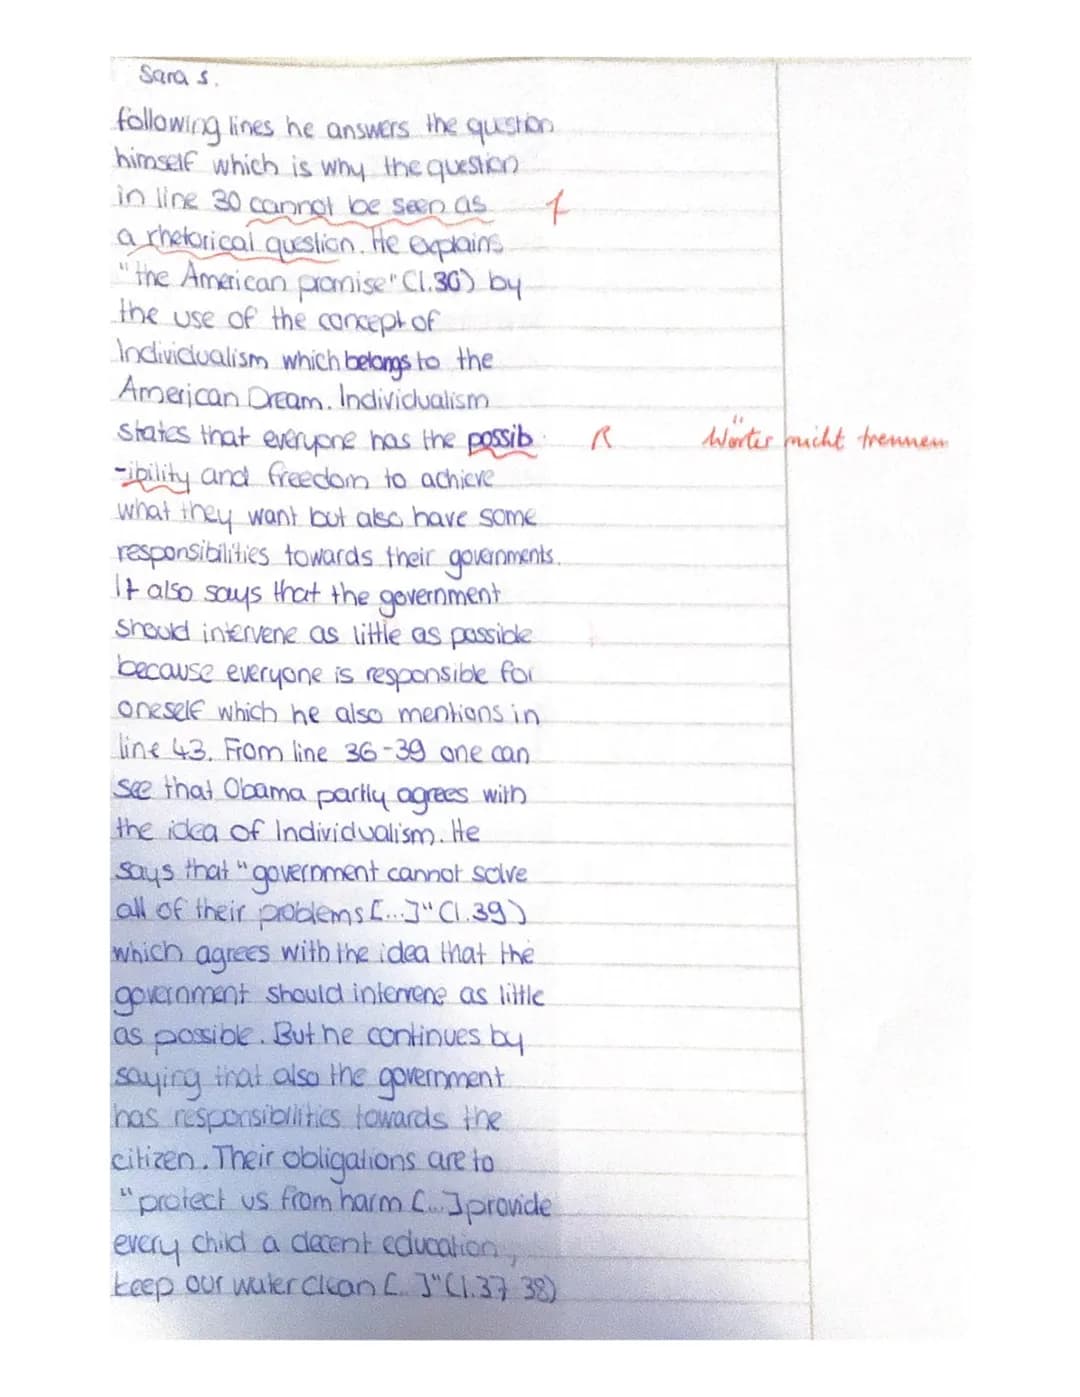 Sara S.
following lines he answers the question
himself which is why the question
in line 30 cannot be seen as f
a rhetorical question. He explains
"the American promise" (l.36) by
the use of the concept of
Individualism which belongs to the
American Dream. Individualism
states that everyone has the possib R Wörter nicht trennen
-ibility and freedom to achieve
what they want but also have some
responsibilities towards their governments.
It also says that the government
should intervene as little as possible
because everyone is responsible for
oneself which he also mentions in
line 43. From line 36-39 one can
see that Obama partly agrees with
the idea of Individualism. He
says that "government cannot solve
all of their problems [...]" (l.39)
which agrees with the idea that the
government should intervene as little
as possible. But he continues by
saying that also the government
has responsibilities towards the
citizen. Their obligations are to
"protect us from harm [...] provide
every child a decent education,
keep our water clean [..]" (l.37 38)